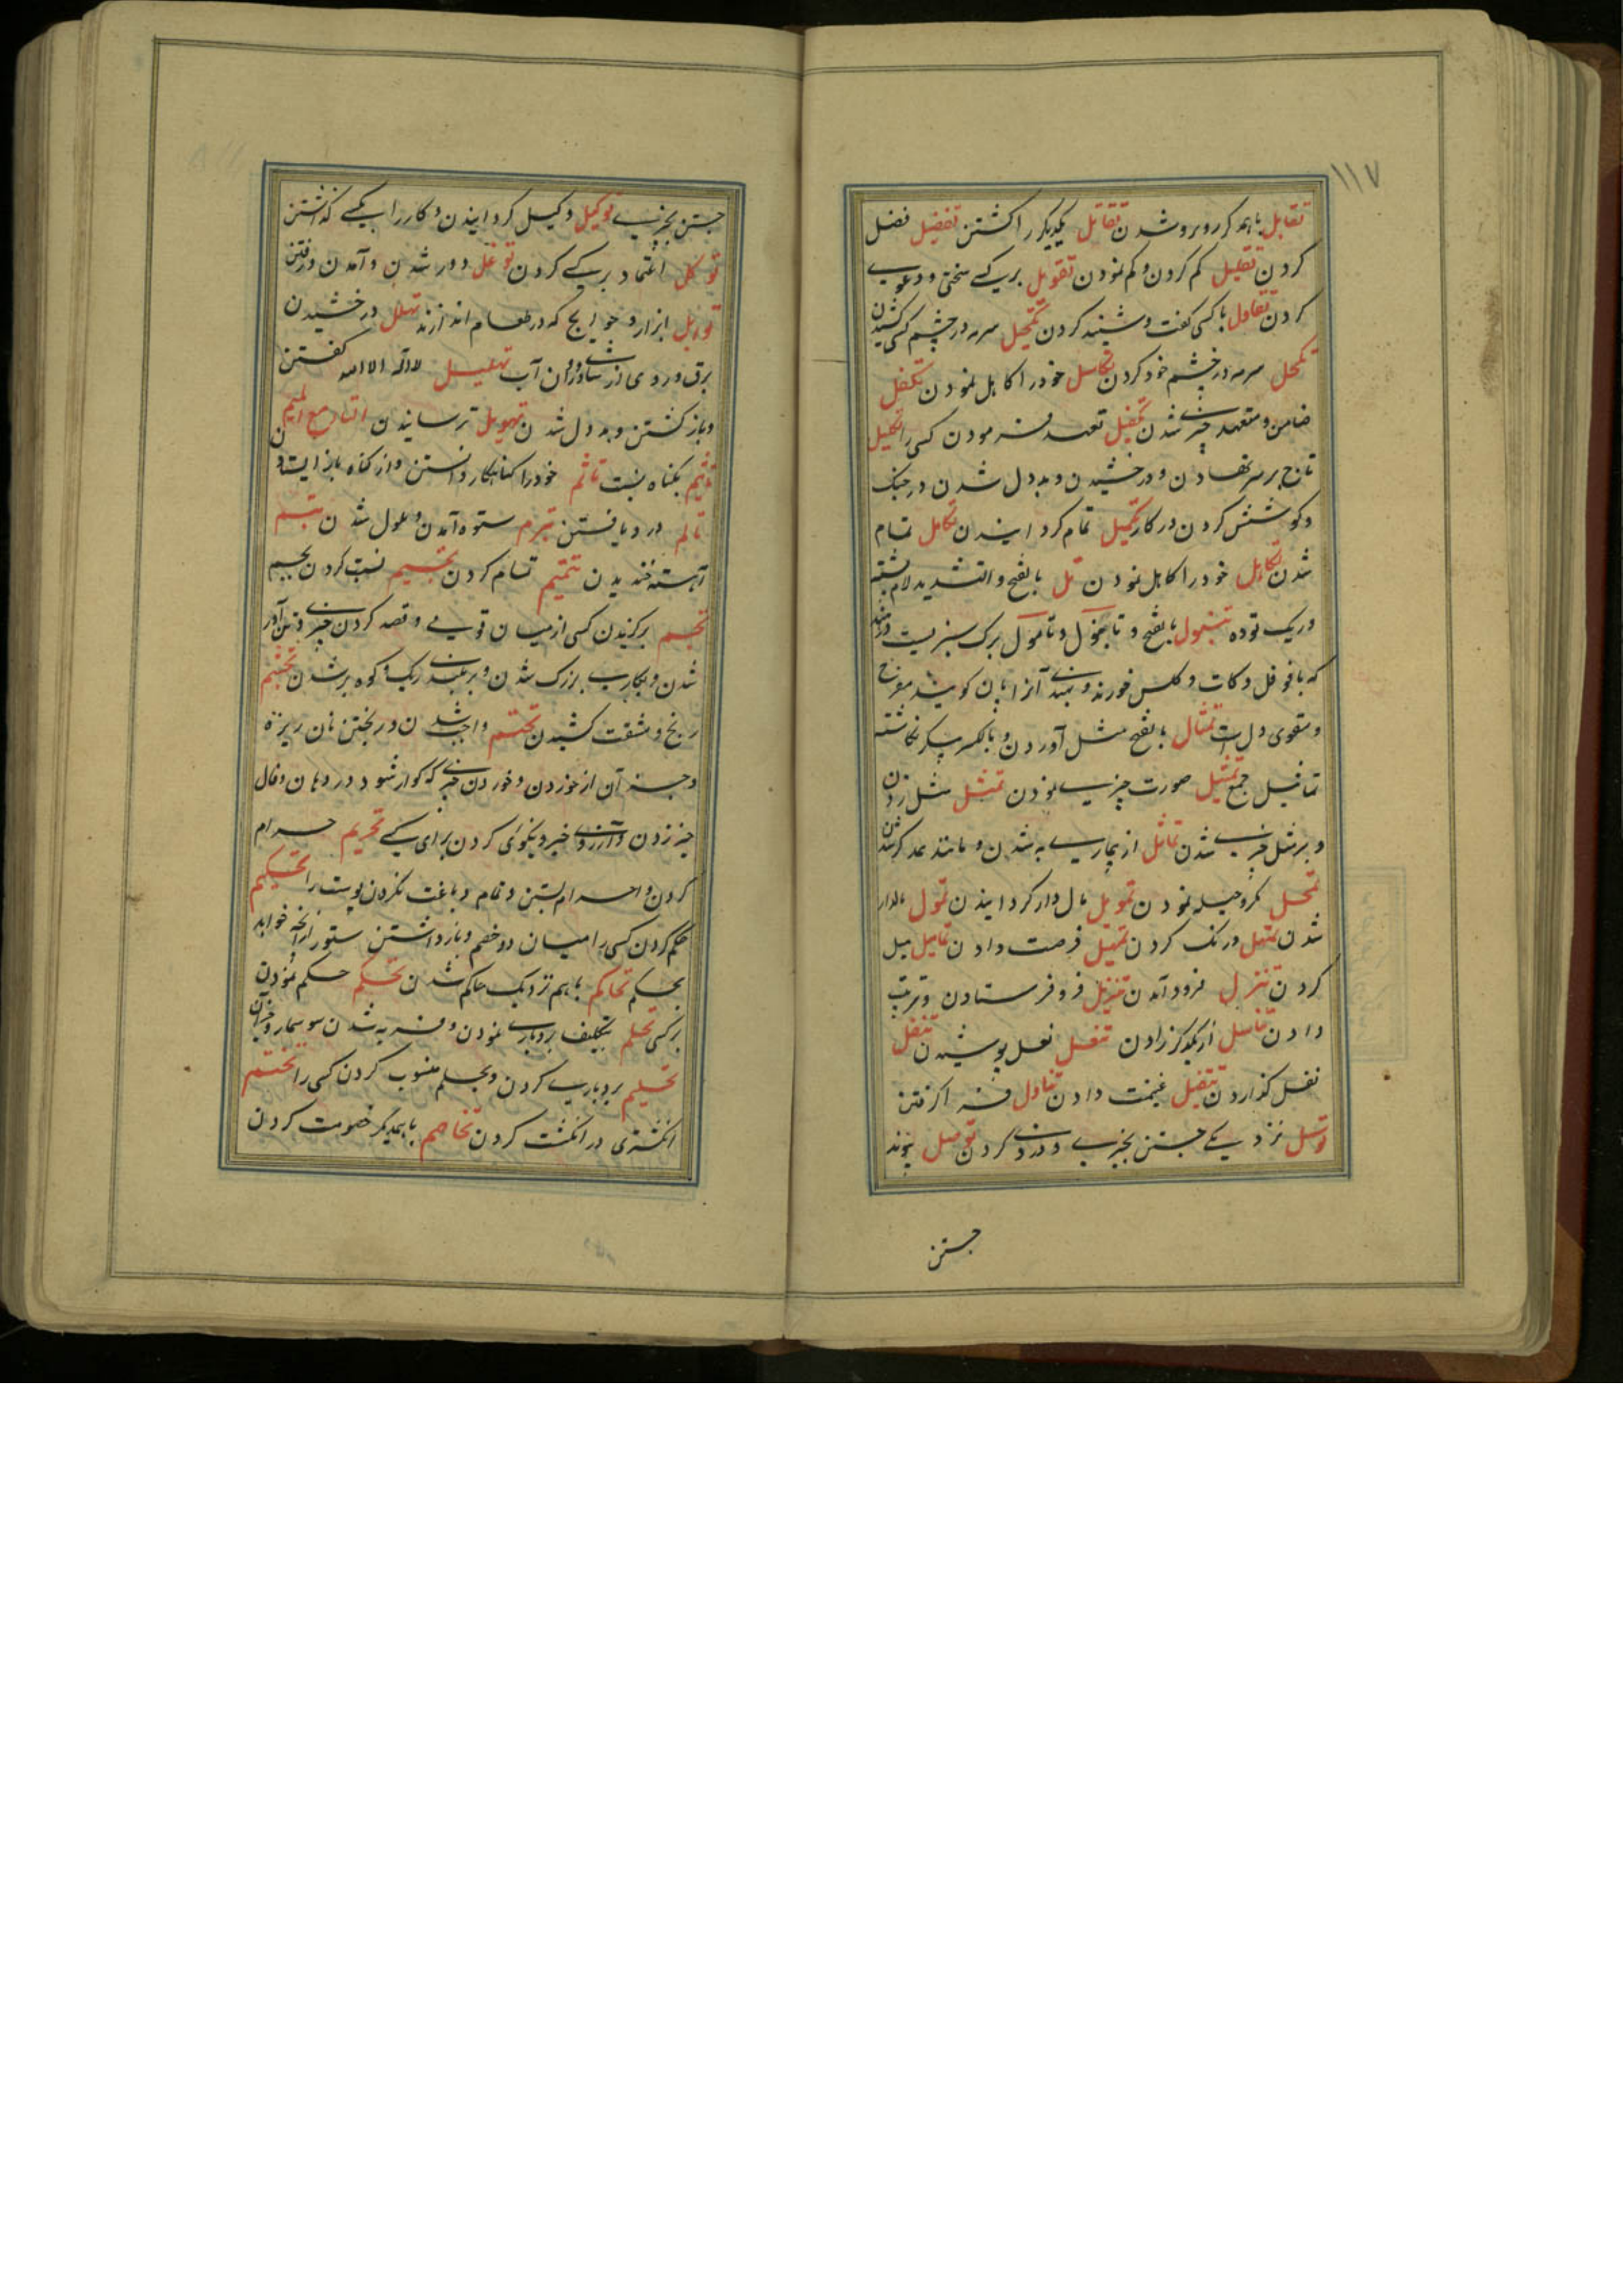 ١١٧
تقابل باهم کر روبرو شدن تقاتل یکدیکر را کشتن تفضیل فضل
کردن تقلیل کم کردن و کم نمودن تقویل بر کسے سختی و دعوے
کردن تقاول با کسی کفت و شنید کردن تکحیل سرمه در چشم کسی کشیدن
تکحل سرمه در چشم خود کردن تکاسل خود را کاهل نمودن تکفل
ضامن و متعهد چیزے شدن تکفیل تعهد فرمودن کسی را تکلیل
تاج بر سر نهادن و درخشیدن و بددل شدن در جنک
و کوشش کردن در کار تکمیل تمام کردانیدن تکامل تمام
شدن تکاهل خود را کاهل نمودن تل بالفتح و التشدید لام پشته
و ریک توده تنبول بالفتح و تامول برک سبزیست در هند
که با فوفل و کات و کلس خورند و هندے آنرا پان کویند مفرح
و مقوی دل است تمثال بالفتح مثل آوردن و بالکسر پیکر نکاشته
تماثیل جمع تمثیل صورت چیزے نمودن تمثل مثل زدن
و بر مثل چیزے شدن تماثل از بیمارے به شدن و مانند همدکر شدن
تمحل مکر و حیله نمودن تمویل مال دار کردانیدن تمول مالدار
شدن تمهل درنک کردن تمهیل فرصت دادن تمایل میل
کردن تنزل فرود آمدن تنزیل فرو فرستادن و ترتیب
دادن تناسل از یکدیکر زادن تنعل نعل پوشیدن تنفل
نفل کذاردن تنفیل غنیمت دادن تناول فرا کرفتن
توسل نزدیکے جستن بچیزے و دزدے کردن توصل پیوند
جستن
جستن بچیزے توکیل وکیل کردانیدن و کار را بکسے کذاشتن
توکل اعتماد بر کسے کردن توغل دور شدن و آمدن و رفتن
توابل ابزار و حوایج که در طعام اندازند تهلل درخشیدن
برق و روی از شادی و روان آب تهلیل لا اله الا الله کفتن
و باز کشتن و بددل شدن تهویل ترسانیدن التاء مع المیم
تاثیم بکناه نسبت تاثم خود را کناهکار دانستن و از کناه باز ایستادن
تالم درد یافتن تبرم ستوه آمدن و ملول شدن تبسم
آهسته خندیدن تتمیم تمام کردن تجسیم نسبت کردن بجسم
تجسم برکزیدن کسی از میان قومی و قصد کردن چیزے و تن آور
شدن و بکارے بزرک شدن و بر بلندے ریک و کوه بر شدن تجشم
رنج و مشقت کشیدن تحتم واجب شدن و ریختن نان ریزه
و جز آن از خوردن و خوردن چیزے که کوار شود در دهان و فال
خیر زدن و آرزوے خیر و نیکوئی کردن برای کسے تحریم حرام
کردن و احرام بستن و تمام دباغت نکردن پوست را تحکیم
حکم کردن کسی را میان دو خصم و باز داشتن ستور از آنچه خواهد
بحکم تحاکم باهم نزدیک حاکم شدن تحکم حکم نمودن
بر کسی تحلم بتکلیف بردبارے نمودن و فربه شدن سوسمار و جز آن
تحلیم بردبارے کردن و بحلم منسوب کردن کسی را تختم
انکشتری در انکشت کردن تخاصم باهمدیکر خصومت کردن